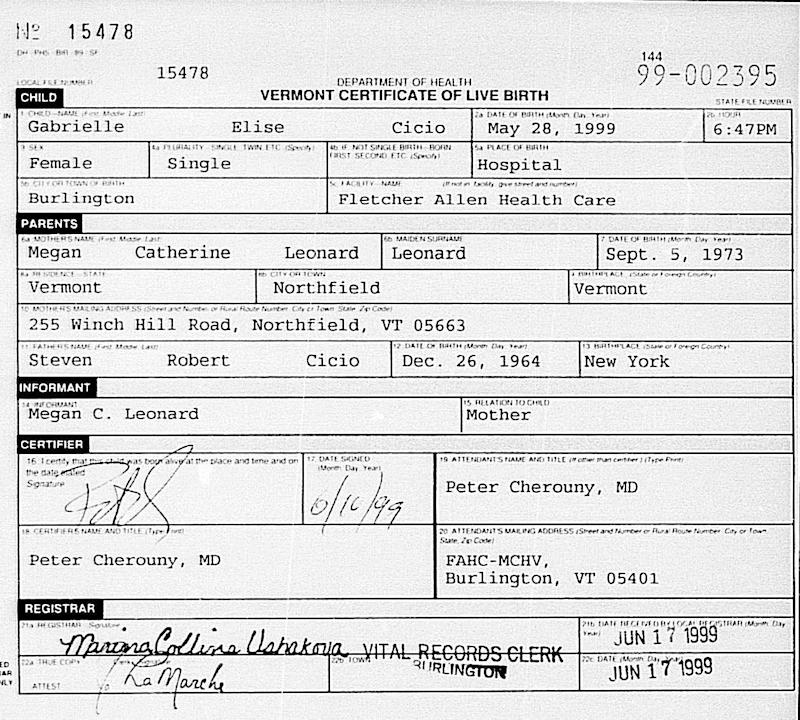 Nº 15478
DH-PHS-BIR-89-SF
144
LOCAL FILE NUMBER 15478 DEPARTMENT OF HEALTH 99-002395
VERMONT CERTIFICATE OF LIVE BIRTH STATE FILE NUMBER
CHILD
IN 1. CHILD—NAME (First, Middle, Last) 2a. DATE OF BIRTH (Month, Day, Year) 2b. HOUR
Gabrielle Elise Cicio May 28, 1999 6:47PM
3. SEX 4a. PLURALITY—SINGLE, TWIN, ETC. (Specify) 4b. IF NOT SINGLE BIRTH—BORN FIRST, SECOND, ETC. (Specify) 5a. PLACE OF BIRTH
Female Single Hospital
5b. CITY OR TOWN OF BIRTH 5c. FACILITY—NAME (If not in facility, give street and number)
Burlington Fletcher Allen Health Care
PARENTS
6a. MOTHER'S NAME (First, Middle, Last) 6b. MAIDEN SURNAME 7. DATE OF BIRTH (Month, Day, Year)
Megan Catherine Leonard Leonard Sept. 5, 1973
8a. RESIDENCE—STATE 8b. CITY OR TOWN 9. BIRTHPLACE (State or Foreign Country)
Vermont Northfield Vermont
10. MOTHER'S MAILING ADDRESS (Street and Number or Rural Route Number, City or Town, State, Zip Code)
255 Winch Hill Road, Northfield, VT 05663
11. FATHER'S NAME (First, Middle, Last) 12. DATE OF BIRTH (Month, Day, Year) 13. BIRTHPLACE (State or Foreign Country)
Steven Robert Cicio Dec. 26, 1964 New York
INFORMANT
14. INFORMANT 15. RELATION TO CHILD
Megan C. Leonard Mother
CERTIFIER
16. I certify that this child was born alive at the place and time and on 17. DATE SIGNED 19. ATTENDANT'S NAME AND TITLE (If other than certifier) (Type/Print)
the date stated. (Month, Day, Year)
Signature
6/10/99 Peter Cherouny, MD
18. CERTIFIER'S NAME AND TITLE (Type/Print) 20. ATTENDANT'S MAILING ADDRESS (Street and Number or Rural Route Number, City or Town,
State, Zip Code)
Peter Cherouny, MD FAHC-MCHV,
Burlington, VT 05401
REGISTRAR
21a. REGISTRAR—Signature 21b. DATE RECEIVED BY LOCAL REGISTRAR (Month, Day,
Year) JUN 17 1999
Marina Collins Ushakova VITAL RECORDS CLERK
22a. TRUE COPY 22b. TOWN BURLINGTON 22c. DATE (Month, Day, Year)
ATTEST La Marche JUN 17 1999
ED
AR
NLY